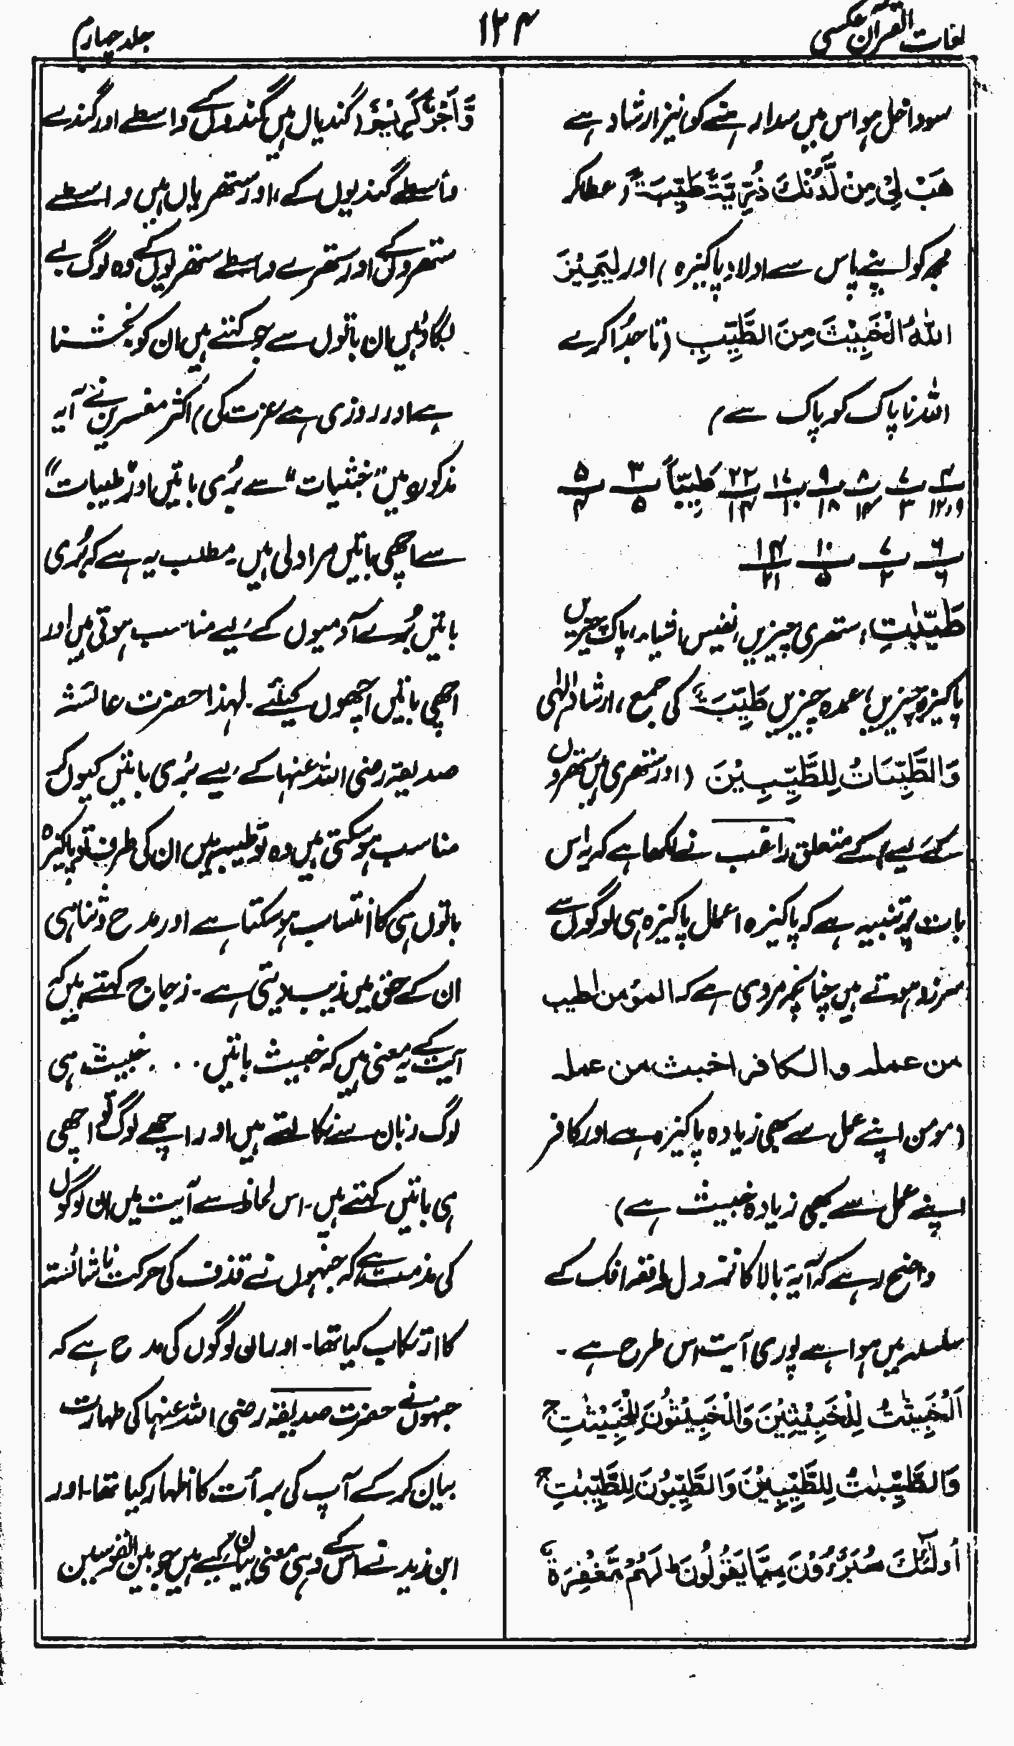 لغات القرآن عکسی
۱۲۴
جلد چہارم
سو داخل ہو اس میں سدا رہنے کو نیز ارشاد ہے
هَبْ لِيْ مِنْ لَّدُنْكَ ذُرِّيَّةً طَيِّبَةً (عطا کر
مجھ کو اپنے پاس سے اولاد پاکیزہ) اور لِيَمِيْزَ
اللّٰهُ الْخَبِيْثَ مِنَ الطَّيِّبِ (تا جدا کرے
اللہ ناپاک کو پاک سے)
۴/۱۲،۹ ۷/۳ ۸/۱۴ ۹/۱۸ ۱۷/۱۰ ۲۲/۱۴ طَيِّبًا ۳/۵ ۵/۴
۶/۶ ۷/۲ ۱۰/۵ ۱۴/۲۱
طَيِّبٰتِ، ستھری چیزیں، نفیس اشیاء، پاک چیزیں
پاکیزہ چیزیں، عمدہ چیزیں طَيِّبَةٌ کی جمع، ارشاد الٰہی
وَالطَّيِّبَاتُ لِلطَّيِّبِيْنَ (اور ستھری ہیں ستھروں
کے لیے) کے متعلق راغب نے لکھا ہے کہ یہ اس
بات پر تنبیہ ہے کہ پاکیزہ اعمال پاکیزہ ہی لوگوں سے
سرزد ہوتے ہیں چنانچہ مروی ہے کہ المؤمن اطیب
من عملہ والکافر اخبث من عملہ
(مومن اپنے عمل سے بھی زیادہ پاکیزہ ہے اور کافر
اپنے عمل سے بھی زیادہ خبیث ہے)
واضح رہے کہ آیۂ بالا کا نزول واقعۂ افک کے
سلسلہ میں ہوا ہے پوری آیت اس طرح ہے۔
اَلْخَبِيثٰتُ لِلْخَبِيْثِيْنَ وَالْخَبِيْثُوْنَ لِلْخَبِيْثٰتِ ج
وَالطَّيِّبٰتُ لِلطَّيِّبِيْنَ وَالطَّيِّبُوْنَ لِلطَّيِّبٰتِ ج
اُولٰٓئِكَ مُبَرَّءُوْنَ مِمَّا يَقُوْلُوْنَ ط لَهُمْ مَّغْفِرَةٌ
وَّاَجْرٌ كَرِيْمٌ (گندیاں ہیں گندوں کے واسطے اور گندے
واسطے گندیوں کے، اور ستھریاں ہیں واسطے
ستھروں کے اور ستھرے واسطے ستھریوں کے وہ لوگ بے
لگاؤ ہیں ان باتوں سے جو کہتے ہیں ان کو بخشنا
ہے اور روزی ہے عزت کی) اکثر مفسرین نے آیۂ
مذکورہ میں "خبثیات" سے بُری باتیں اور "طیبات"
سے اچھی باتیں مراد لی ہیں۔ مطلب یہ ہے کہ بُری
باتیں بُرے آدمیوں کے لیے مناسب ہوتی ہیں اور
اچھی باتیں اچھوں کیلئے۔ لہذا حضرت عائشہ
صدیقہ رضی اللہ عنہا کے لیے بُری باتیں کیوں کر
مناسب ہو سکتی ہیں وہ تو طیبہ ہیں ان کی طرف تو پاکیزہ
باتوں ہی کا انتساب ہو سکتا ہے اور مدح و ثنا ہی
ان کے حق میں زیب دیتی ہے۔ زجاج کہتے ہیں کہ
آیت کے یہ معنی ہیں کہ خبیث باتیں . . . خبیث ہی
لوگ زبان سے نکالتے ہیں اور اچھے لوگ تو اچھی
ہی باتیں کہتے ہیں۔ اس لحاظ سے آیت میں ان لوگوں
کی مذمت ہے کہ جنہوں نے قذف کی حرکت ناشائستہ
کا ارتکاب کیا تھا۔ اور ان لوگوں کی مدح ہے کہ
جنہوں نے حضرت صدیقہ رضی اللہ عنہا کی طہارت
بیان کر کے آپ کی برأت کا اظہار کیا تھا۔ اور
ابن زید نے اس کے وہی معنی بیان کیے ہیں جو بین